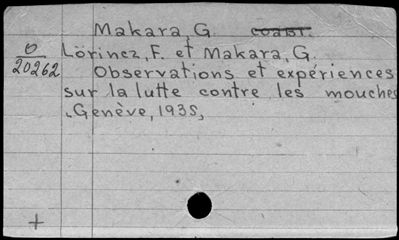 Makara, G. coabt.
O
20262
Lörincz, F. et Makara, G.
Observations et expériences
sur la lutte contre les mouches
Genève, 1935,
+